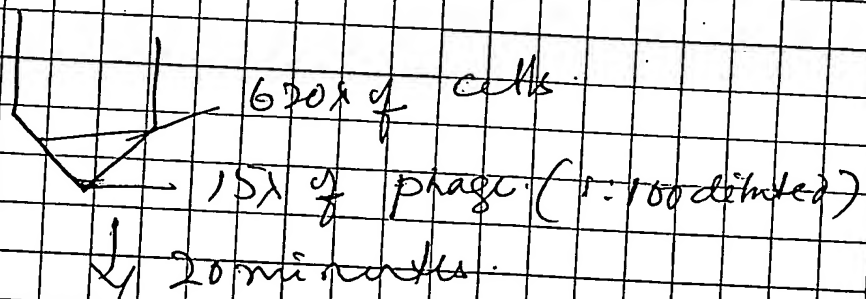 620λ of cells.
15λ of phage. (1:100 diluted)
↓ 20 minutes.